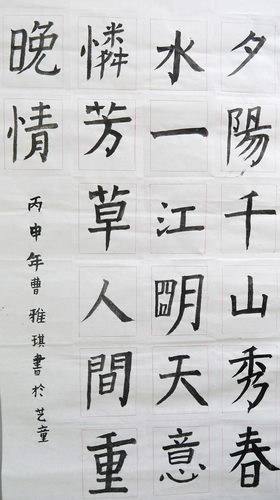 夕陽千山秀春
水一江明天意
憐芳草人間重
晚情
丙申年曹雅琪書於艺童